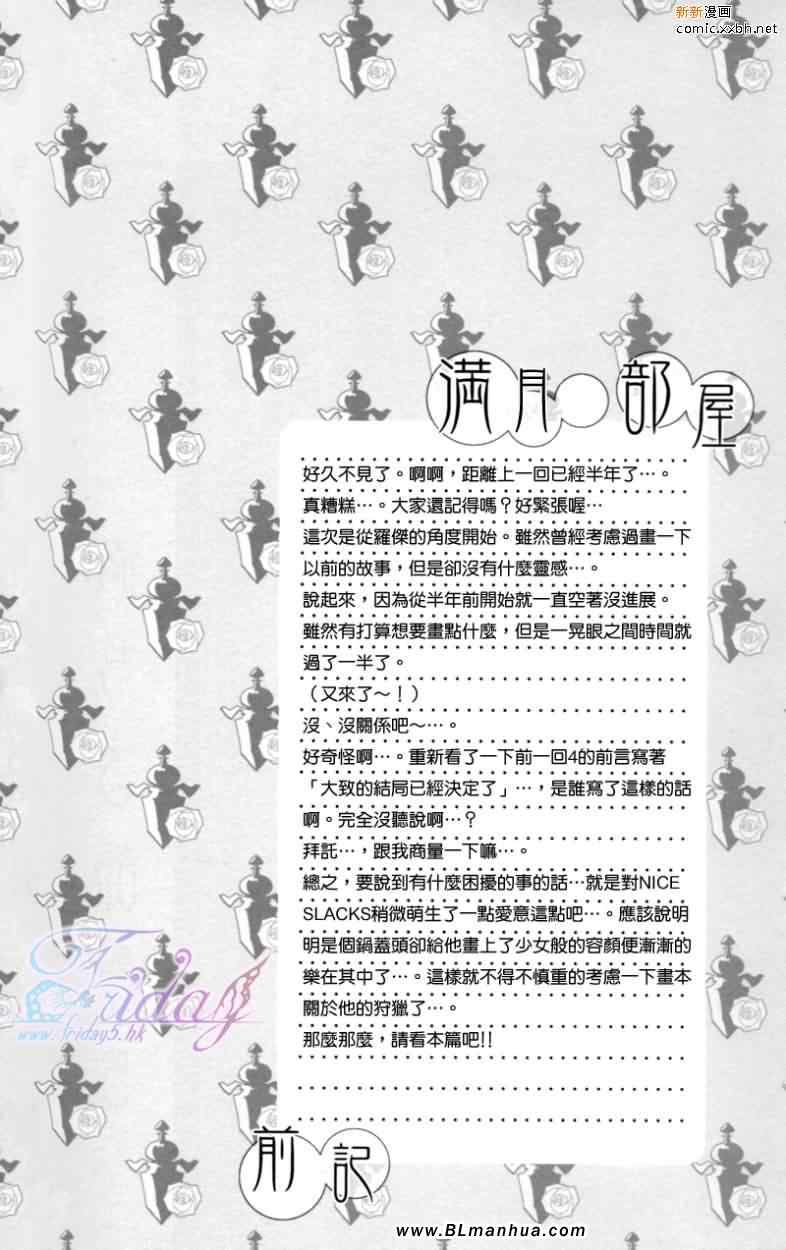 新新漫画
comic.xxbh.net
満月部屋
好久不見了。啊啊，距離上一回已經半年了…。
真糟糕…。大家還記得嗎？好緊張喔…
這次是從羅傑的角度開始。雖然曾經考慮過畫一下
以前的故事，但是卻沒有什麼靈感…。
說起來，因為從半年前開始就一直空著沒進展。
雖然有打算想要畫點什麼，但是一晃眼之間時間就
過了一半了。
（又來了～！）
沒、沒關係吧～…。
好奇怪啊…。重新看了一下前一回4的前言寫著
「大致的結局已經決定了」…，是誰寫了這樣的話
啊。完全沒聽說啊…？
拜託…，跟我商量一下嘛…。
總之，要說到有什麼困擾的事的話…就是對NICE
SLACKS稍微萌生了一點愛意這點吧…。應該說明
明是個鍋蓋頭卻給他畫上了少女般的容顏便漸漸的
樂在其中了…。這樣就不得不慎重的考慮一下畫本
關於他的狩獵了…。
那麼那麼，請看本篇吧!!
前記
Friday
www.friday5.hk
www.BLmanhua.com